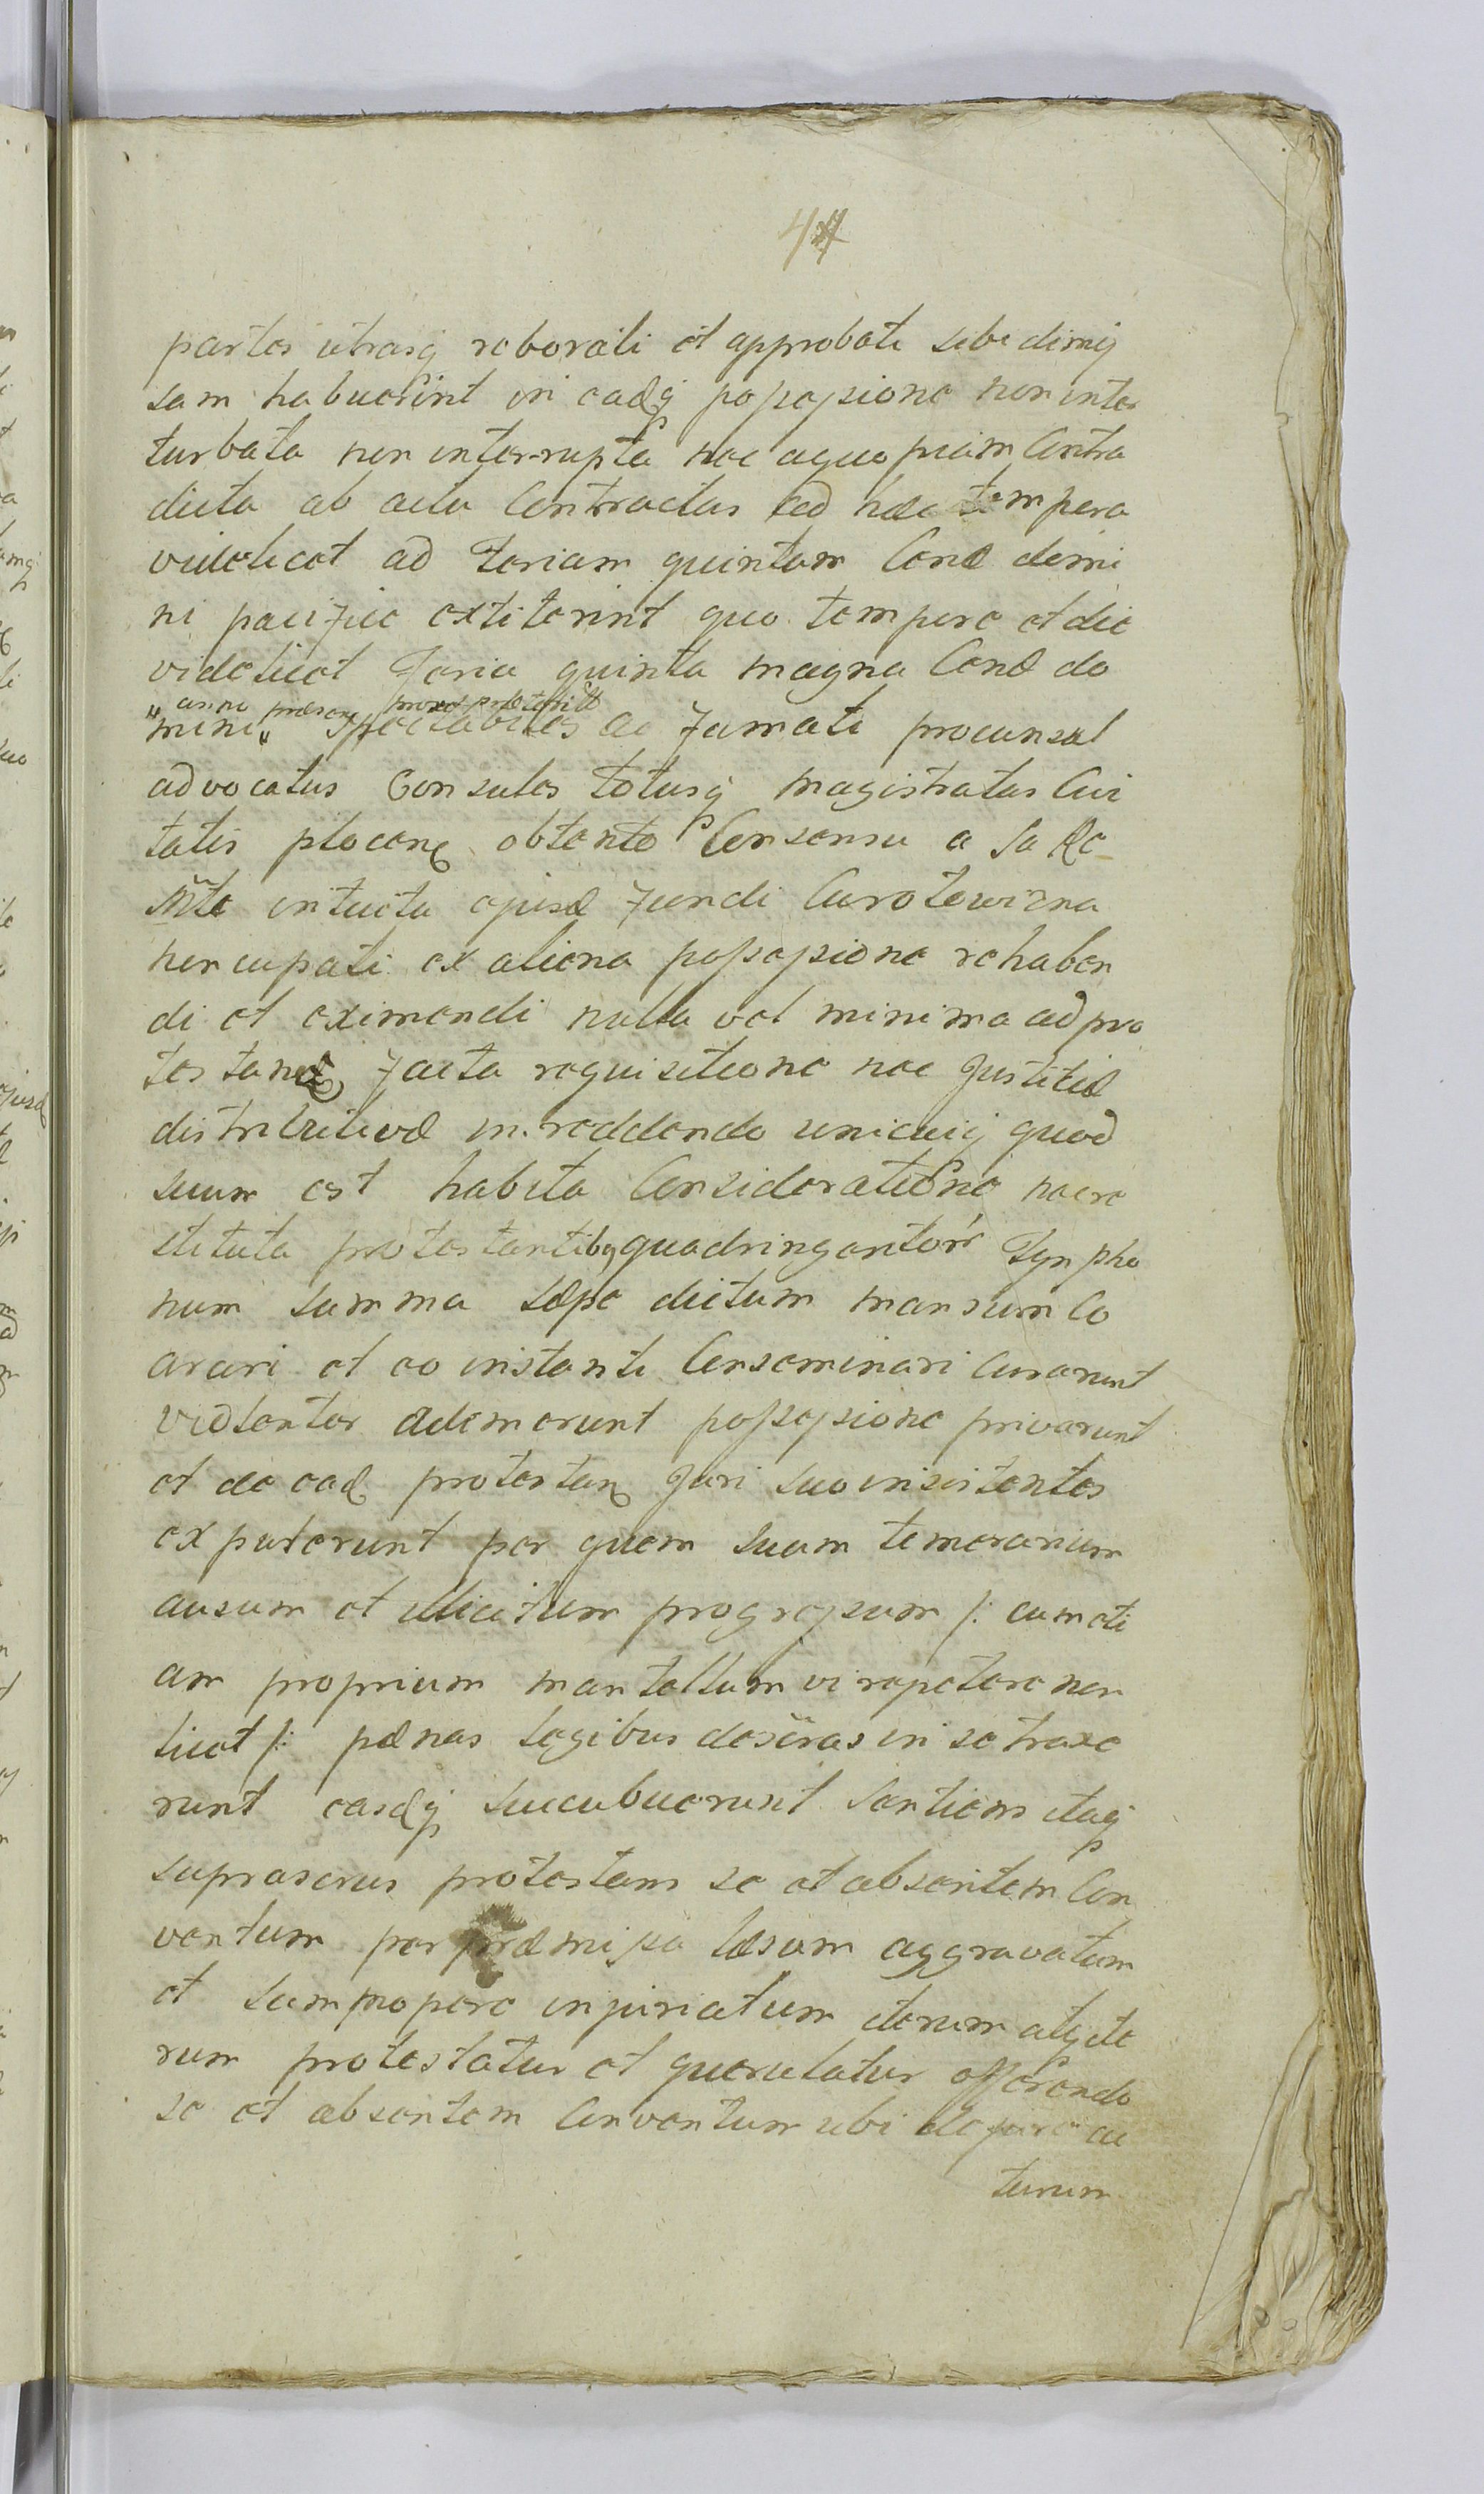 partes utrasq roborati et approbati sibi dimiſ
sam habuerint in eadq poſseſsione non inter
turbata non interrupta nec a quopiam Contra
dicta ab actu Contractus ad hæc tempora
videlicet ad Feriam quintam Cenæ domi
ni pacifice extiterint quo tempore et die
videlicet Feria quinta magna Cenæ do
anno præsen proxe præterito
mini Spectabiles ac famati proconsul
advocatus Consules totusq magistratus Civi
tatis plocen obtento Consensu a Sa Re
Mte intuitu ejusd fundi Curotowizna
noncupati ex aliena poſseſsione rehaben
di et eximendi nulla vel minima ad pro
testan facta requisitione nec Justitiæ
distributivæ in reddendo unicuiq quod
suum est habita Consideratione nec re
stituta protestantibq quadringentorr Tynpho
num summa sæpe dictum mansum Co
arari et eo instanti Conseminari Curarunt
vioLenter ademerunt poſseſsione privarunt
et de ead protestan Juri suo insistentes
expulerunt per quem suum temerarium
ausum et illicitum progreſsum /: cum eti
am proprium mantellum vi repetere non
licet /: pænas legibus descras in se traxe
runt easdq succubuerunt Sentiens itaq
suprascrus protestans se et absentem Con
ventum per præmiſsa læsum aggravatum
et summopere injuriatum iterum atq ite
rum protestatur et querulatur offerendo
se et absentem Conventum ubi de jure ac
turum